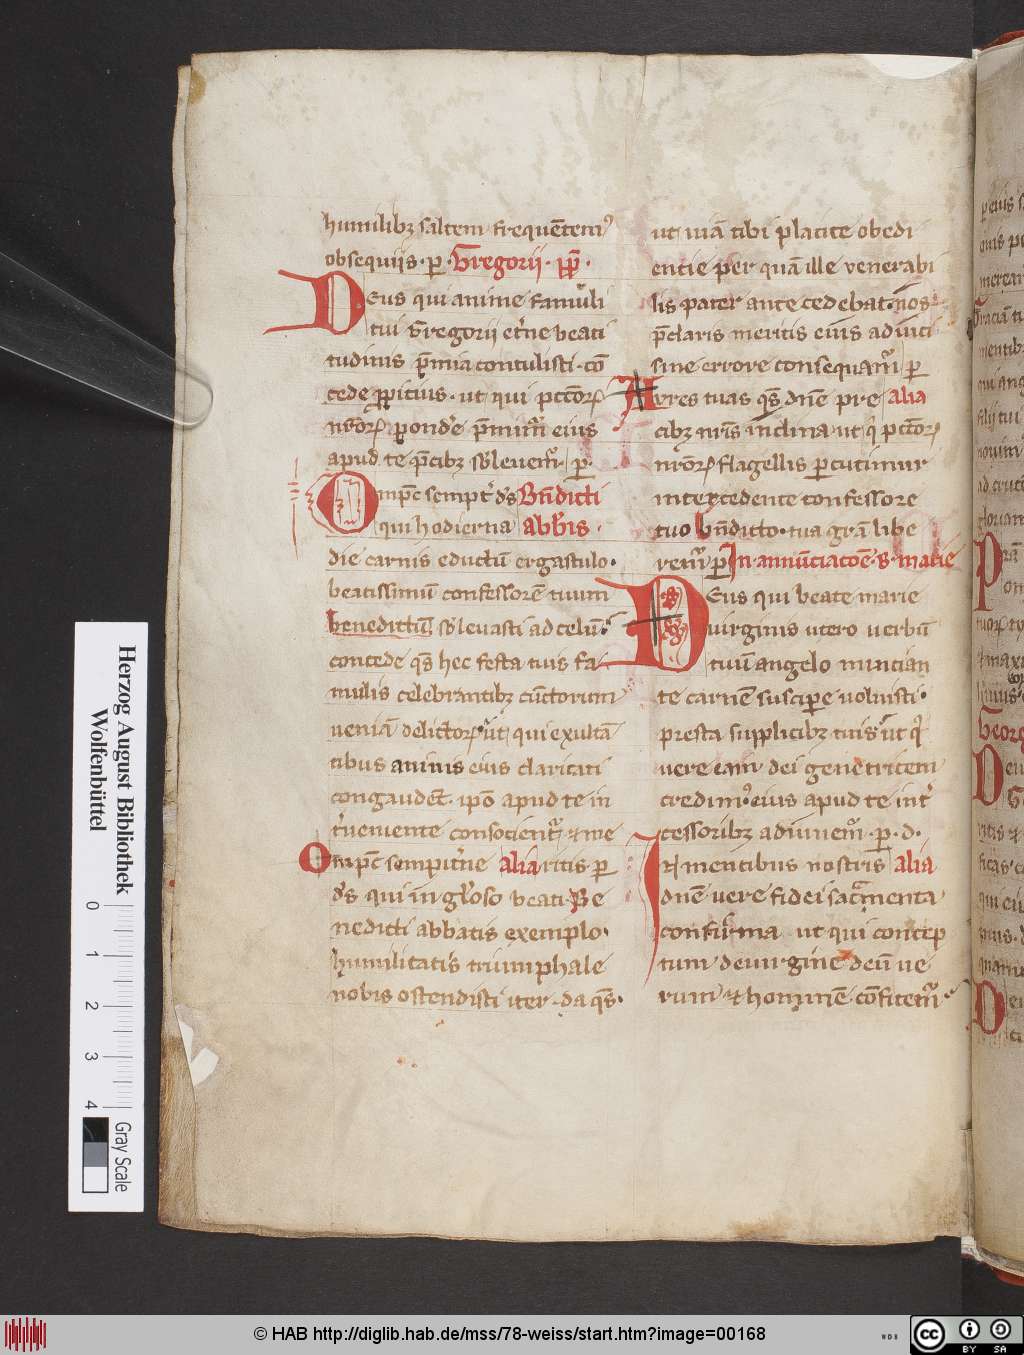 humilibꝫ saltem frequētemꝰ
obsequiis · ꝑ · Gregorii · pp̄ ·
Deus qui anime famuli
tui Gregorii et̄ne beati
tudinis p̄mia contulisti · cō
cede ꝓpicius · ut qui pcc̄orꝝ
nr̄orꝝ pond'e p̄mimᷣ eius
apud te p̄cibꝫ sb̓leuemᷣ · ꝑ ·
Omp̄c sempt̓ d's Bn̄dicti
qui hodierna abb̄is ·
die carnis eductū ergastulo ·
beatissimū confessorē tuum
benedictū sb̓leuasti ad celū ·
concede qs̄ hec festa tuis fa
mulis celebrantibꝫ cūctorum
ueniā delictorꝝ ut qui exultā
tibus animis eius claritati
congaudēt · ipō apud te in
t̓ueniente consocientᷣ ⁊ me
Omp̄c sempit̓ne alia ritis ꝑ
d's qui in gl̓oso beati Be
nedicti abbatis exemplo ·
humilitatis triumphale
nobis ostendisti iter · da qs̄ ·
ut uiā tibi placite obedi
entie per quā ille venerabi
lis pater antecedebat · nos
p̄claris meritis eius adiuti
sine errore consequamᷣ ꝑ
Aures tuas qs̄ dn̄e pre alia
cibꝫ nr̄is inclina · ut q̓ pcc̄orꝝ
nr̄orꝝ flagellis ꝑcutimur
intercedente confessore
tuo bn̄dicto · tua grā̄ libe
remᷣ ꝑ In annūciacōe · s · marie
Deus qui beate marie
uirginis utero uerbū
tuū angelo nuncian
te carnē suscipe uoluisti ·
presta supplicibꝫ tuis ut qͥ
uere eam dei genetricem
credimꝰ eius apud te int̓
cessoribꝫ adiuuemᷣ · ꝑ · d ·
In mentibus nostris alia
dn̄e uere fidei sac̄menta
confirma ut qui concep
tum de uirgine deū ue
rum ⁊ hominē cōfitemᷣ
Herzog August Bibliothek
Wolfenbüttel
0 1 2 3 4
Gray Scale
© HAB http://diglib.hab.de/mss/78-weiss/start.htm?image=00168
WDB
cc BY SA